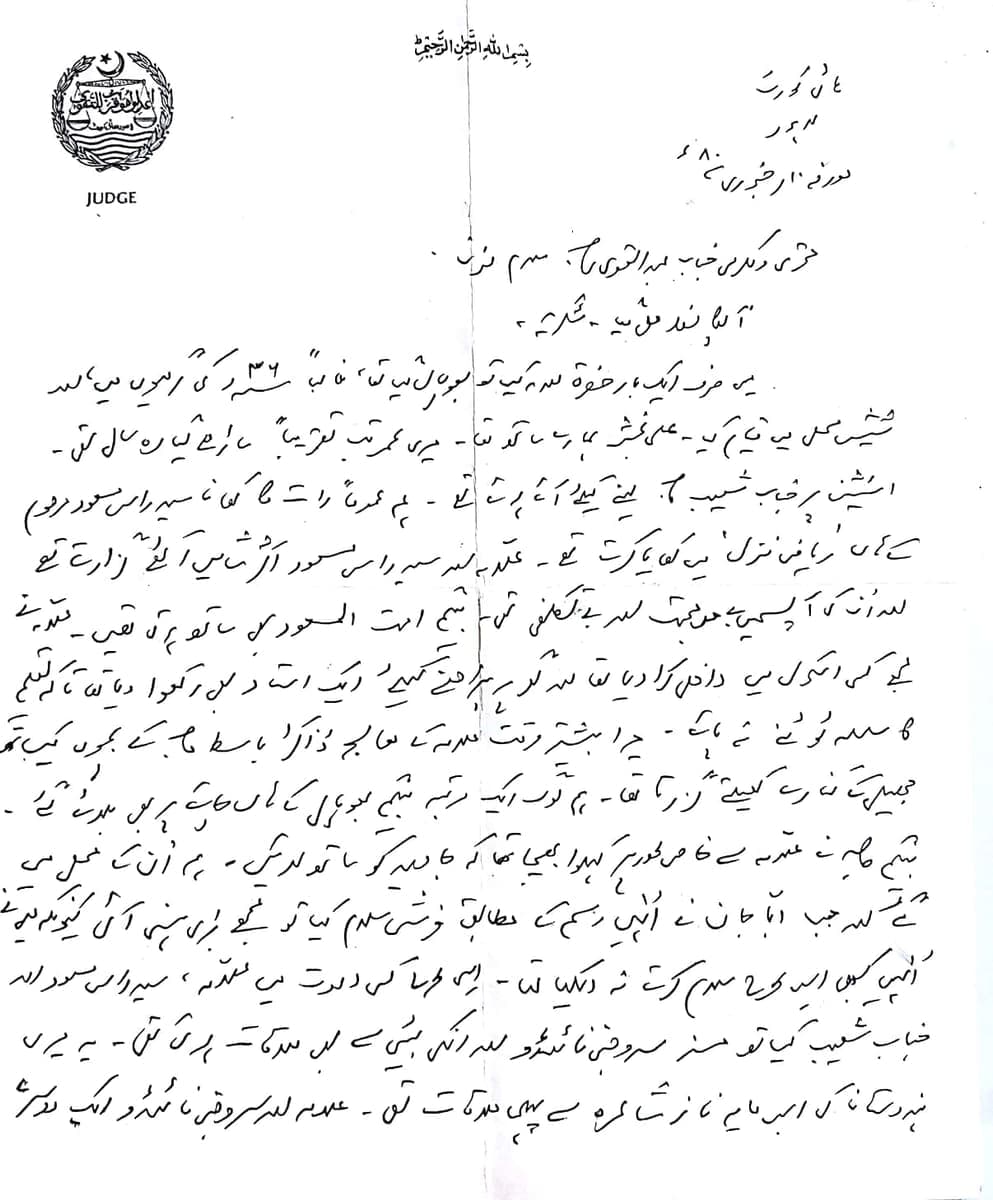 بسم اللہ الرحمٰن الرحیم
JUDGE
ہائی کورٹ
لاہور
مورخہ ۱۰ر جنوری ۸۰ء
محترمی و مکرمی جناب عبد القوی صاحب۔ سلام مسنون۔
آپکا خط مل گیا۔ شکریہ۔
میں صرف ایک بار حضرت علامہ کیساتھ بھوپال گیا تھا، غالباً ۳۶ء کی گرمیوں میں، اور
شیش محل میں قیام کیا۔ علی بخش ہمارے ساتھ تھا۔ میری عمر تب تقریباً ساڑھے گیارہ سال تھی۔
اسٹیشن پر جناب شعیب صاحب لینے کیلئے آئے ہوئے تھے۔ ہم عموماً رات کا کھانا سید راس مسعود مرحوم
کے ہاں ریاض منزل میں کھایا کرتے تھے۔ علامہ اور سید راس مسعود اکثر شامیں اکٹھے گزارتے تھے
اور اُن کی آپس میں بے حد محبت اور بے تکلفی تھی۔ بیگم امت المسعود بھی ساتھ ہوتی تھیں۔ علامہ نے
مجھے کسی اسکول میں داخل کرا دیا تھا اور گھر پر پڑھنے کیلئے ایک استاد بھی رکھوا دیا تھا تاکہ تعلیم
کا سلسلہ ٹوٹنے نہ پائے۔ میرا بیشتر وقت علامہ کے معالج ڈاکٹر باسط صاحب کے بچوں کیساتھ
جھیل کے کنارے کھیلتے گزرتا تھا۔ ہم لوگ ایک مرتبہ بیگم بھوپال کے ہاں چائے پر بھی بلائے گئے۔
بیگم صاحبہ نے علامہ سے خاص طور پر کہلوا بھیجا تھا کہ جاوید کو ساتھ لائیں۔ ہم اُن کے محل میں
گئے اور جب ابّا جان نے اُنہیں رسم کے مطابق فرشی سلام کیا تو مجھے بڑی ہنسی آئی کیونکہ میں نے
اُنہیں کبھی اس طرح سلام کرتے نہ دیکھا تھا۔ اسی طرح کسی دعوت میں علامہ، سید راس مسعود اور
جناب شعیب کیساتھ مسز سروجنی نائیڈو اور انکی بیٹی سے بھی ملاقات ہوئی تھی۔ یہ میری
ہندوستان کی اس مایہ ناز شاعرہ سے پہلی ملاقات تھی۔ علامہ اور سروجنی نائیڈو ایک دوسرے